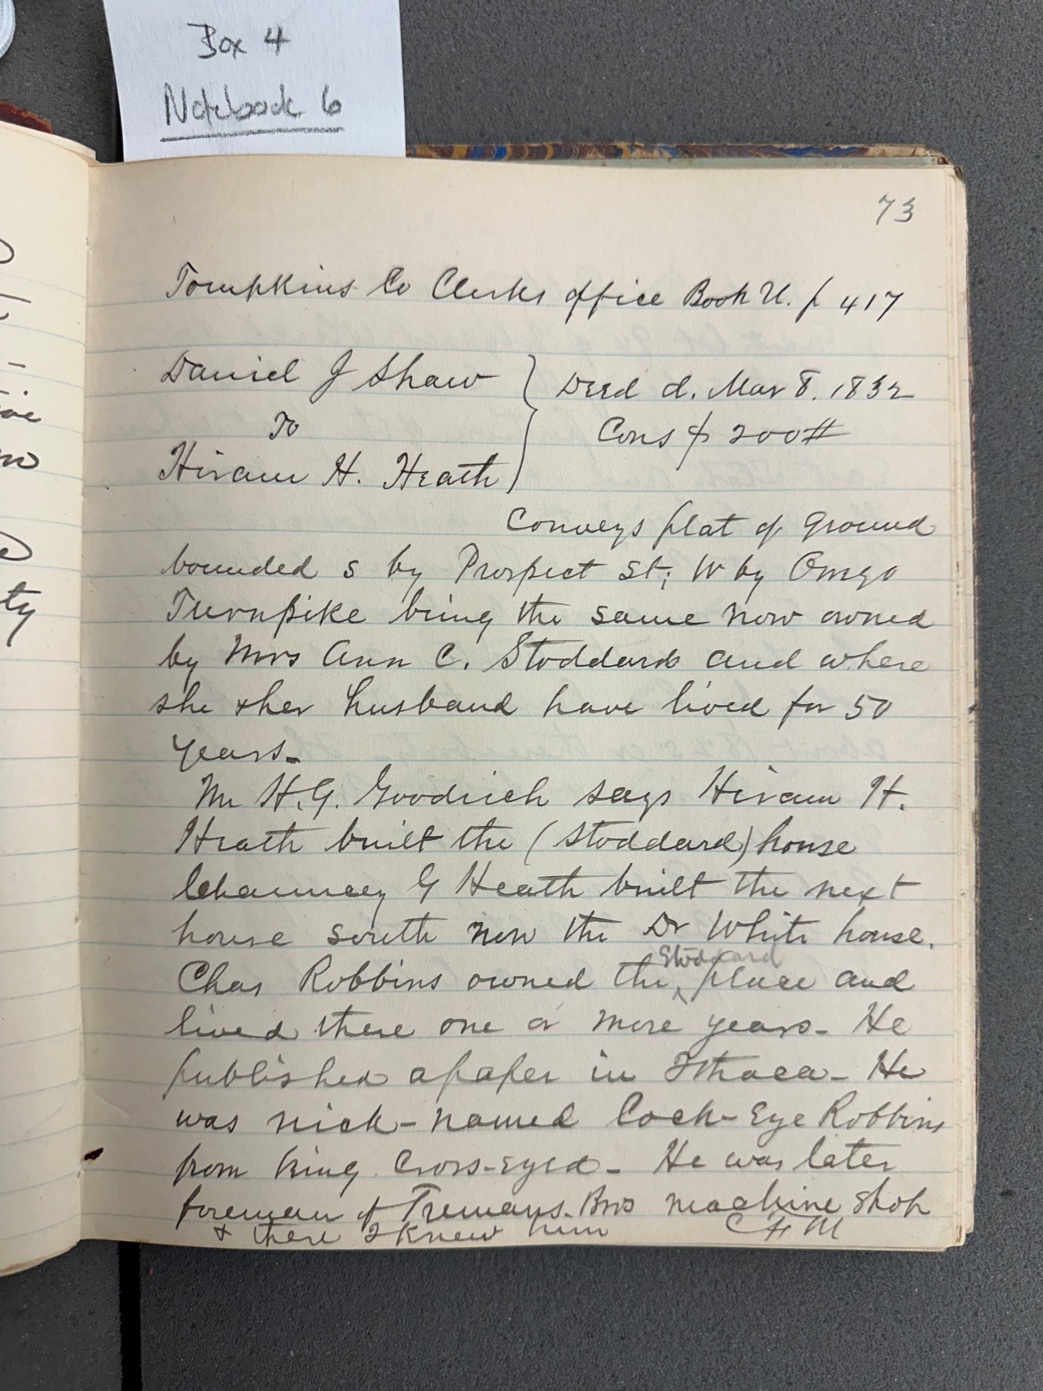 Box 4
Notebook 6
73
Tompkins Co Clerks office Book U. p 417
Daniel J Shaw
To
Hiram H. Heath
Deed d. Mar 8. 1832
Cons $ 200#
Conveys plat of ground
bounded S by Prospect St; W by Owego
Turnpike being the same now owned
by Mrs Ann C. Stoddard and where
she & her husband have lived for 50
years-
Mr H.G. Goodrich says Hiram H.
Heath built the (Stoddard) house
Chauncey G Heath built the next
house south now the Dr White house.
Chas Robbins owned the Stoddard place and
lived there one or more years- He
published a paper in Ithaca- He
was nick-named Cock-Eye Robbins
from being Cross-eyed- He was later
foreman of Tremans. Bros machine shop
& there I knew him C F M